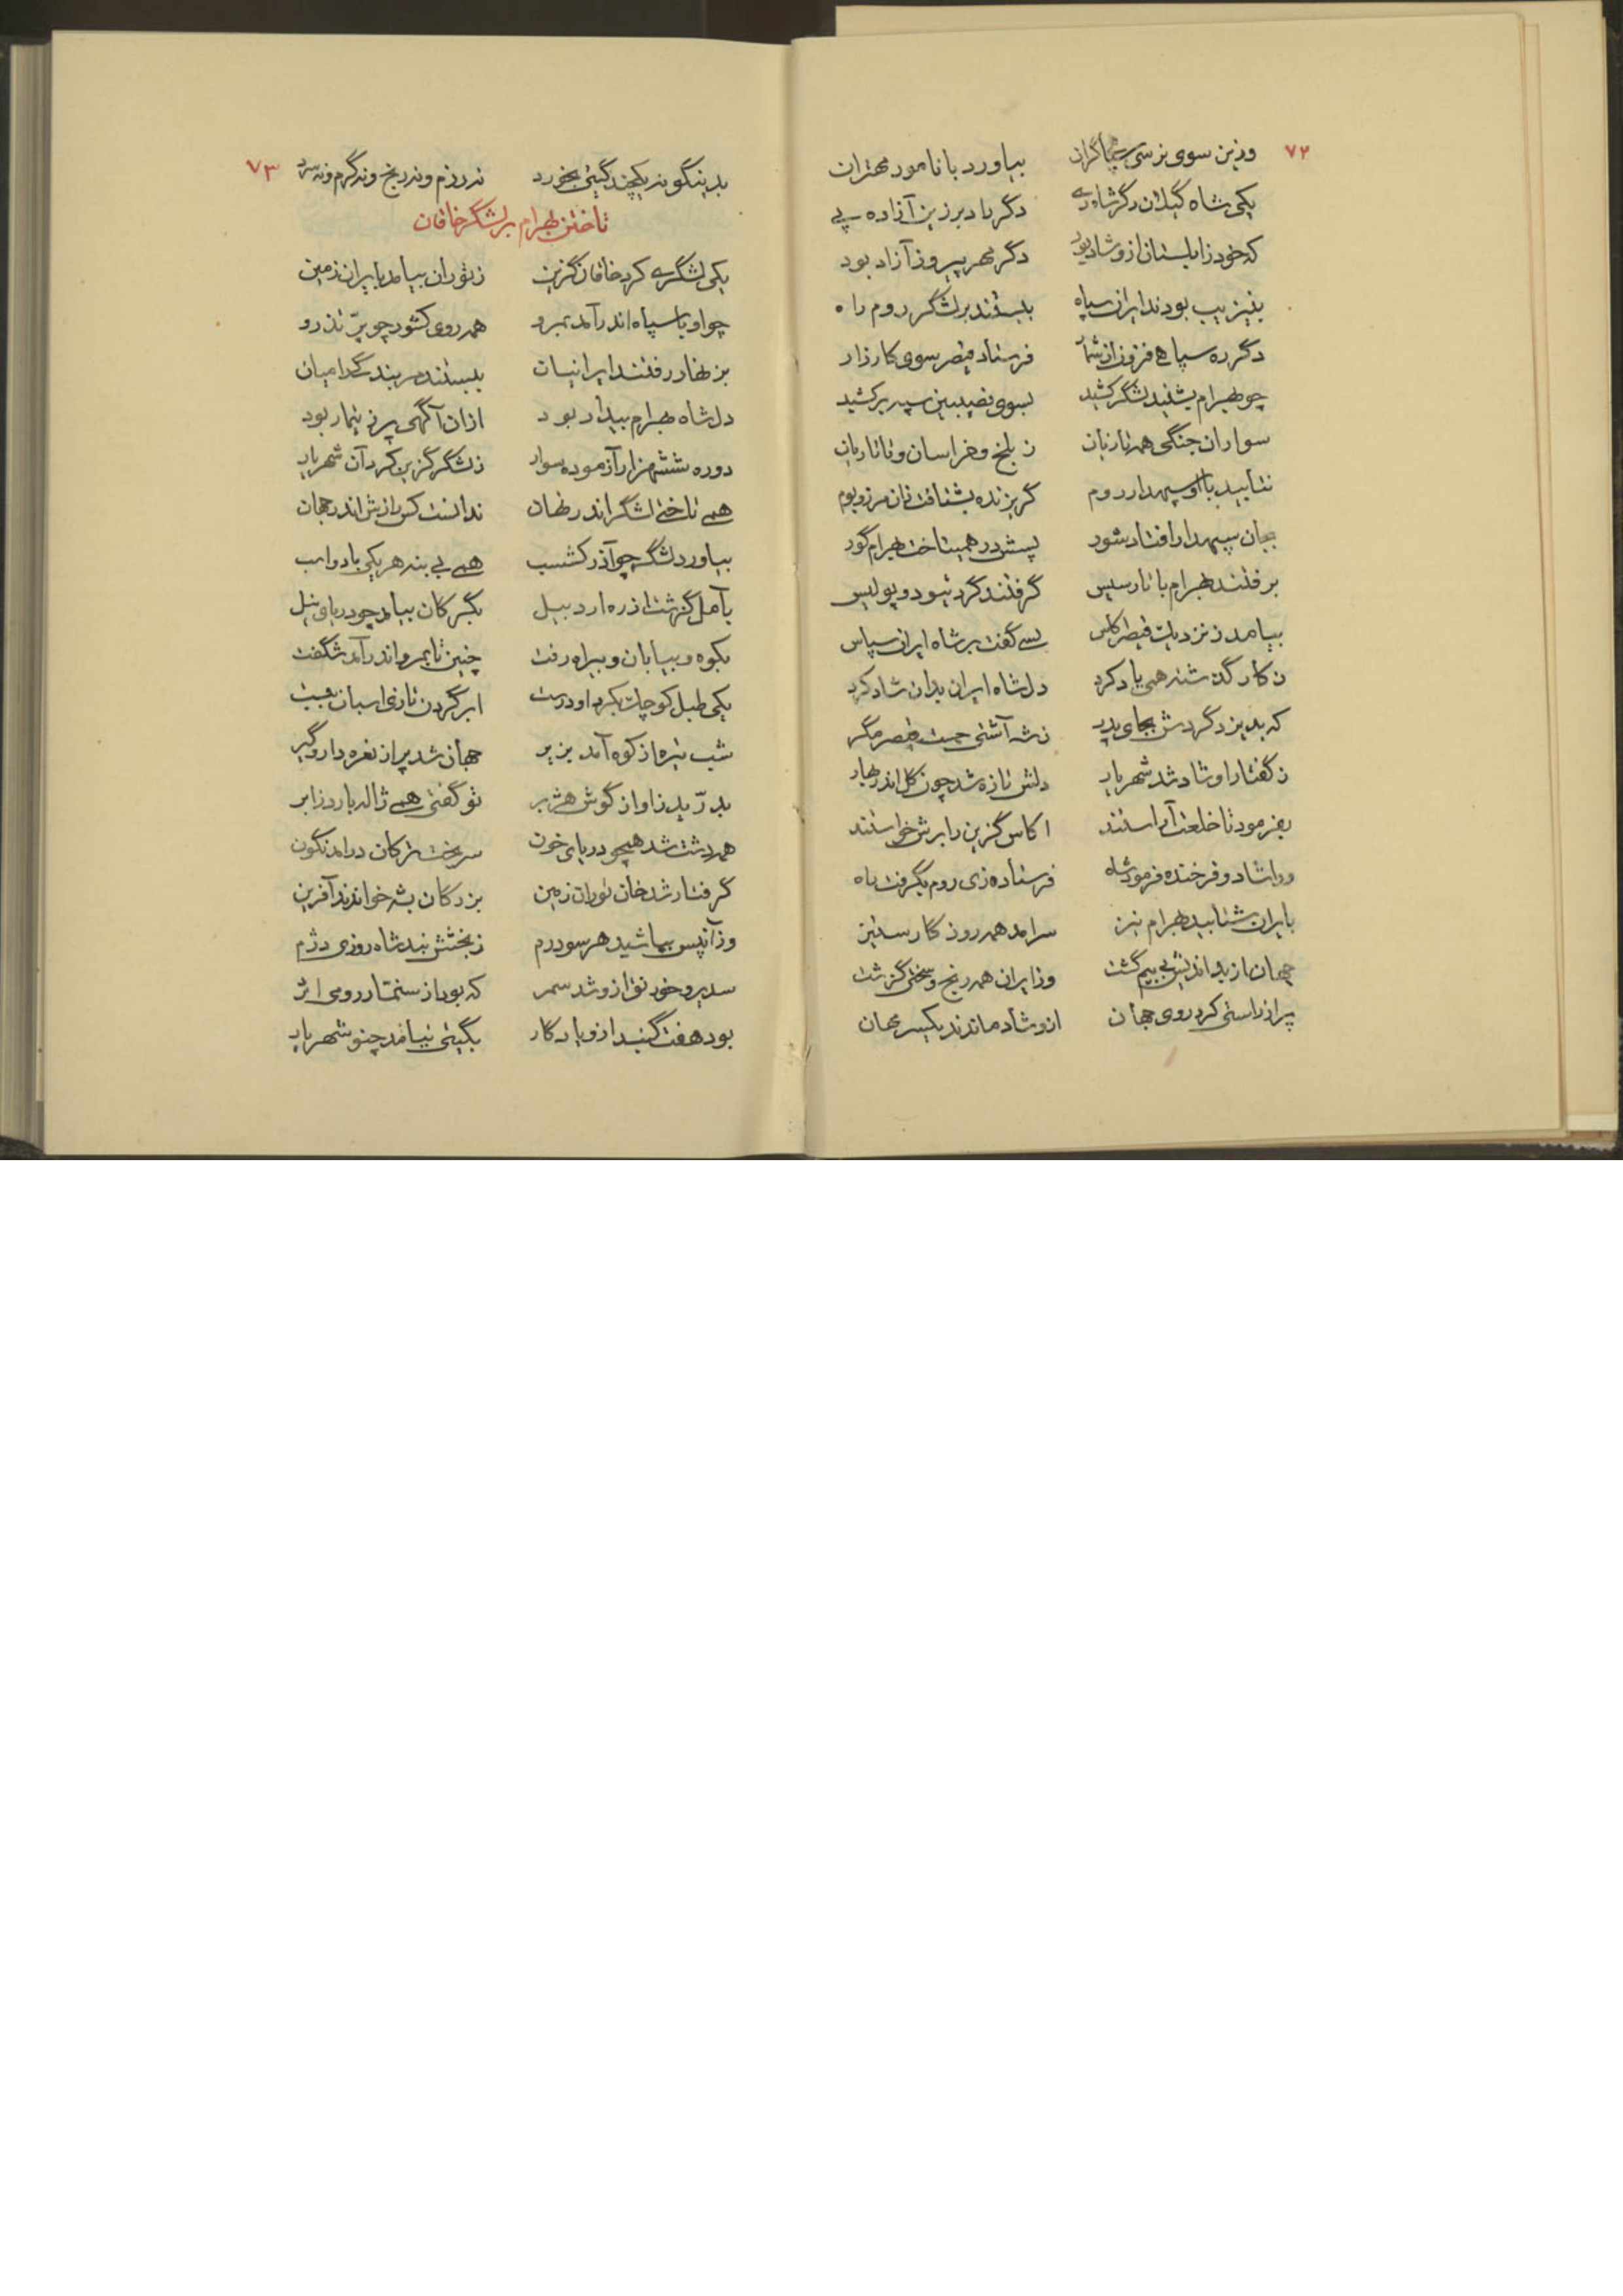 ۷۲
وزین سوی نرسی سپاه گران بیاورد با نامور مهتران
یکی شاه گیلان دگر شاه ری دگر داد برزین آزاده پی
که خود زابلستان ازو شاد بود دگر مهر پیروز آزاد بود
بدین زیب بودند ایران سپاه ببستند بر لشگر روم راه
دگر ره سپاهی فزون از شمار فرستاد قیصر سوی کارزار
چو بهرام بشنید لشگر کشید بسوی نصیبین سپه برکشید
سواران جنگی همه تازیان ز بلخ و خراسان و تاتاریان
نتابید با او سپهدار روم گریزنده بشتافت زان مرز و بوم
سپهدار افتاد شود پسش در همیتاخت بهرام گور
برفتند بهرام با نارسیس گرفتند گرد تیودوپولیس
بیامد ز نزدیک قیصر کلس بسی گفت بر شاه ایران سپاس
ز کار گذشته همی یاد کرد دل شاه ایران بدان شاد کرد
که بد یزدگردش بجای پدر ز شه آشتی جست قیصر مگر
ز گفتار او شاد شد شهریار دلش تازه شد چون گل اندر بهار
بفرمود تا خلعت آراستند اکاس گزین را برش خواستند
ورا شاد و فرخنده فرمود شاه فرستاده زی روم بگرفت راه
بایران شتابید بهرام نیز سرامد همه روزگار ستیز
جهان از بداندیش بی بیم گشت وز ایران همه رنج و سختی گزشت
پر از راستی کرد روی جهان ازو شاد ماندند یکسر مهان
۷۳
بدینگونه یکچند گیتی بخورد نه رزم و نه رنج و نه گرم و نه سرد
تاختن بهرام بر لشگر خاقان
یکی لشگری کرد خاقان گزین ز توران بیامد بایران زمین
چو او با سپاه اندر آمد بمرو همه روی کشور چو پرّ تذرو
بزنهار رفتند ایرانیان ببستند مر بندگی را میان
دل شاه بهرام بیدار بود ازان آگهی پر ز تیمار بود
دوره ششهزار آزموده سوار ز لشگر گزین کرد آن شهریار
همی تاختی لشگر اندر نهان ندانست کس رازش اندر جهان
بیاورد لشگر چو آذرگشسب همی بی بنه هر یکی با دو اسب
بآمل گزشت از ره اردبیل بگرگان بیامد چو دریای نیل
بکوه و بیابان و بیراه رفت چنین تا بمرو اندر آمد شگفت
یکی طبل کوچک بکرد او درست ابر گردن تازی اسبان ببست
شب تیره از کوه آمد بزیر جهان شد پر از نعره دار و گیر
بدرّید زاواز گوش هژبر تو گفتی همی ژاله بارد ز ابر
همه دشت شد همچو دریای خون سر بخت ترکان درامد نگون
گرفتار شد خان توران زمین بزرگان بشه خواندند آفرین
وز آنپس بپاشید هر سو درم ز بخشش نبد شاه روزی دژم
سدیر و خورنق ازو شد سمر که بود از سنمّار رومی اثر
بود هفت گنبد ازو یادگار بگیتی نیامد چنو شهریار